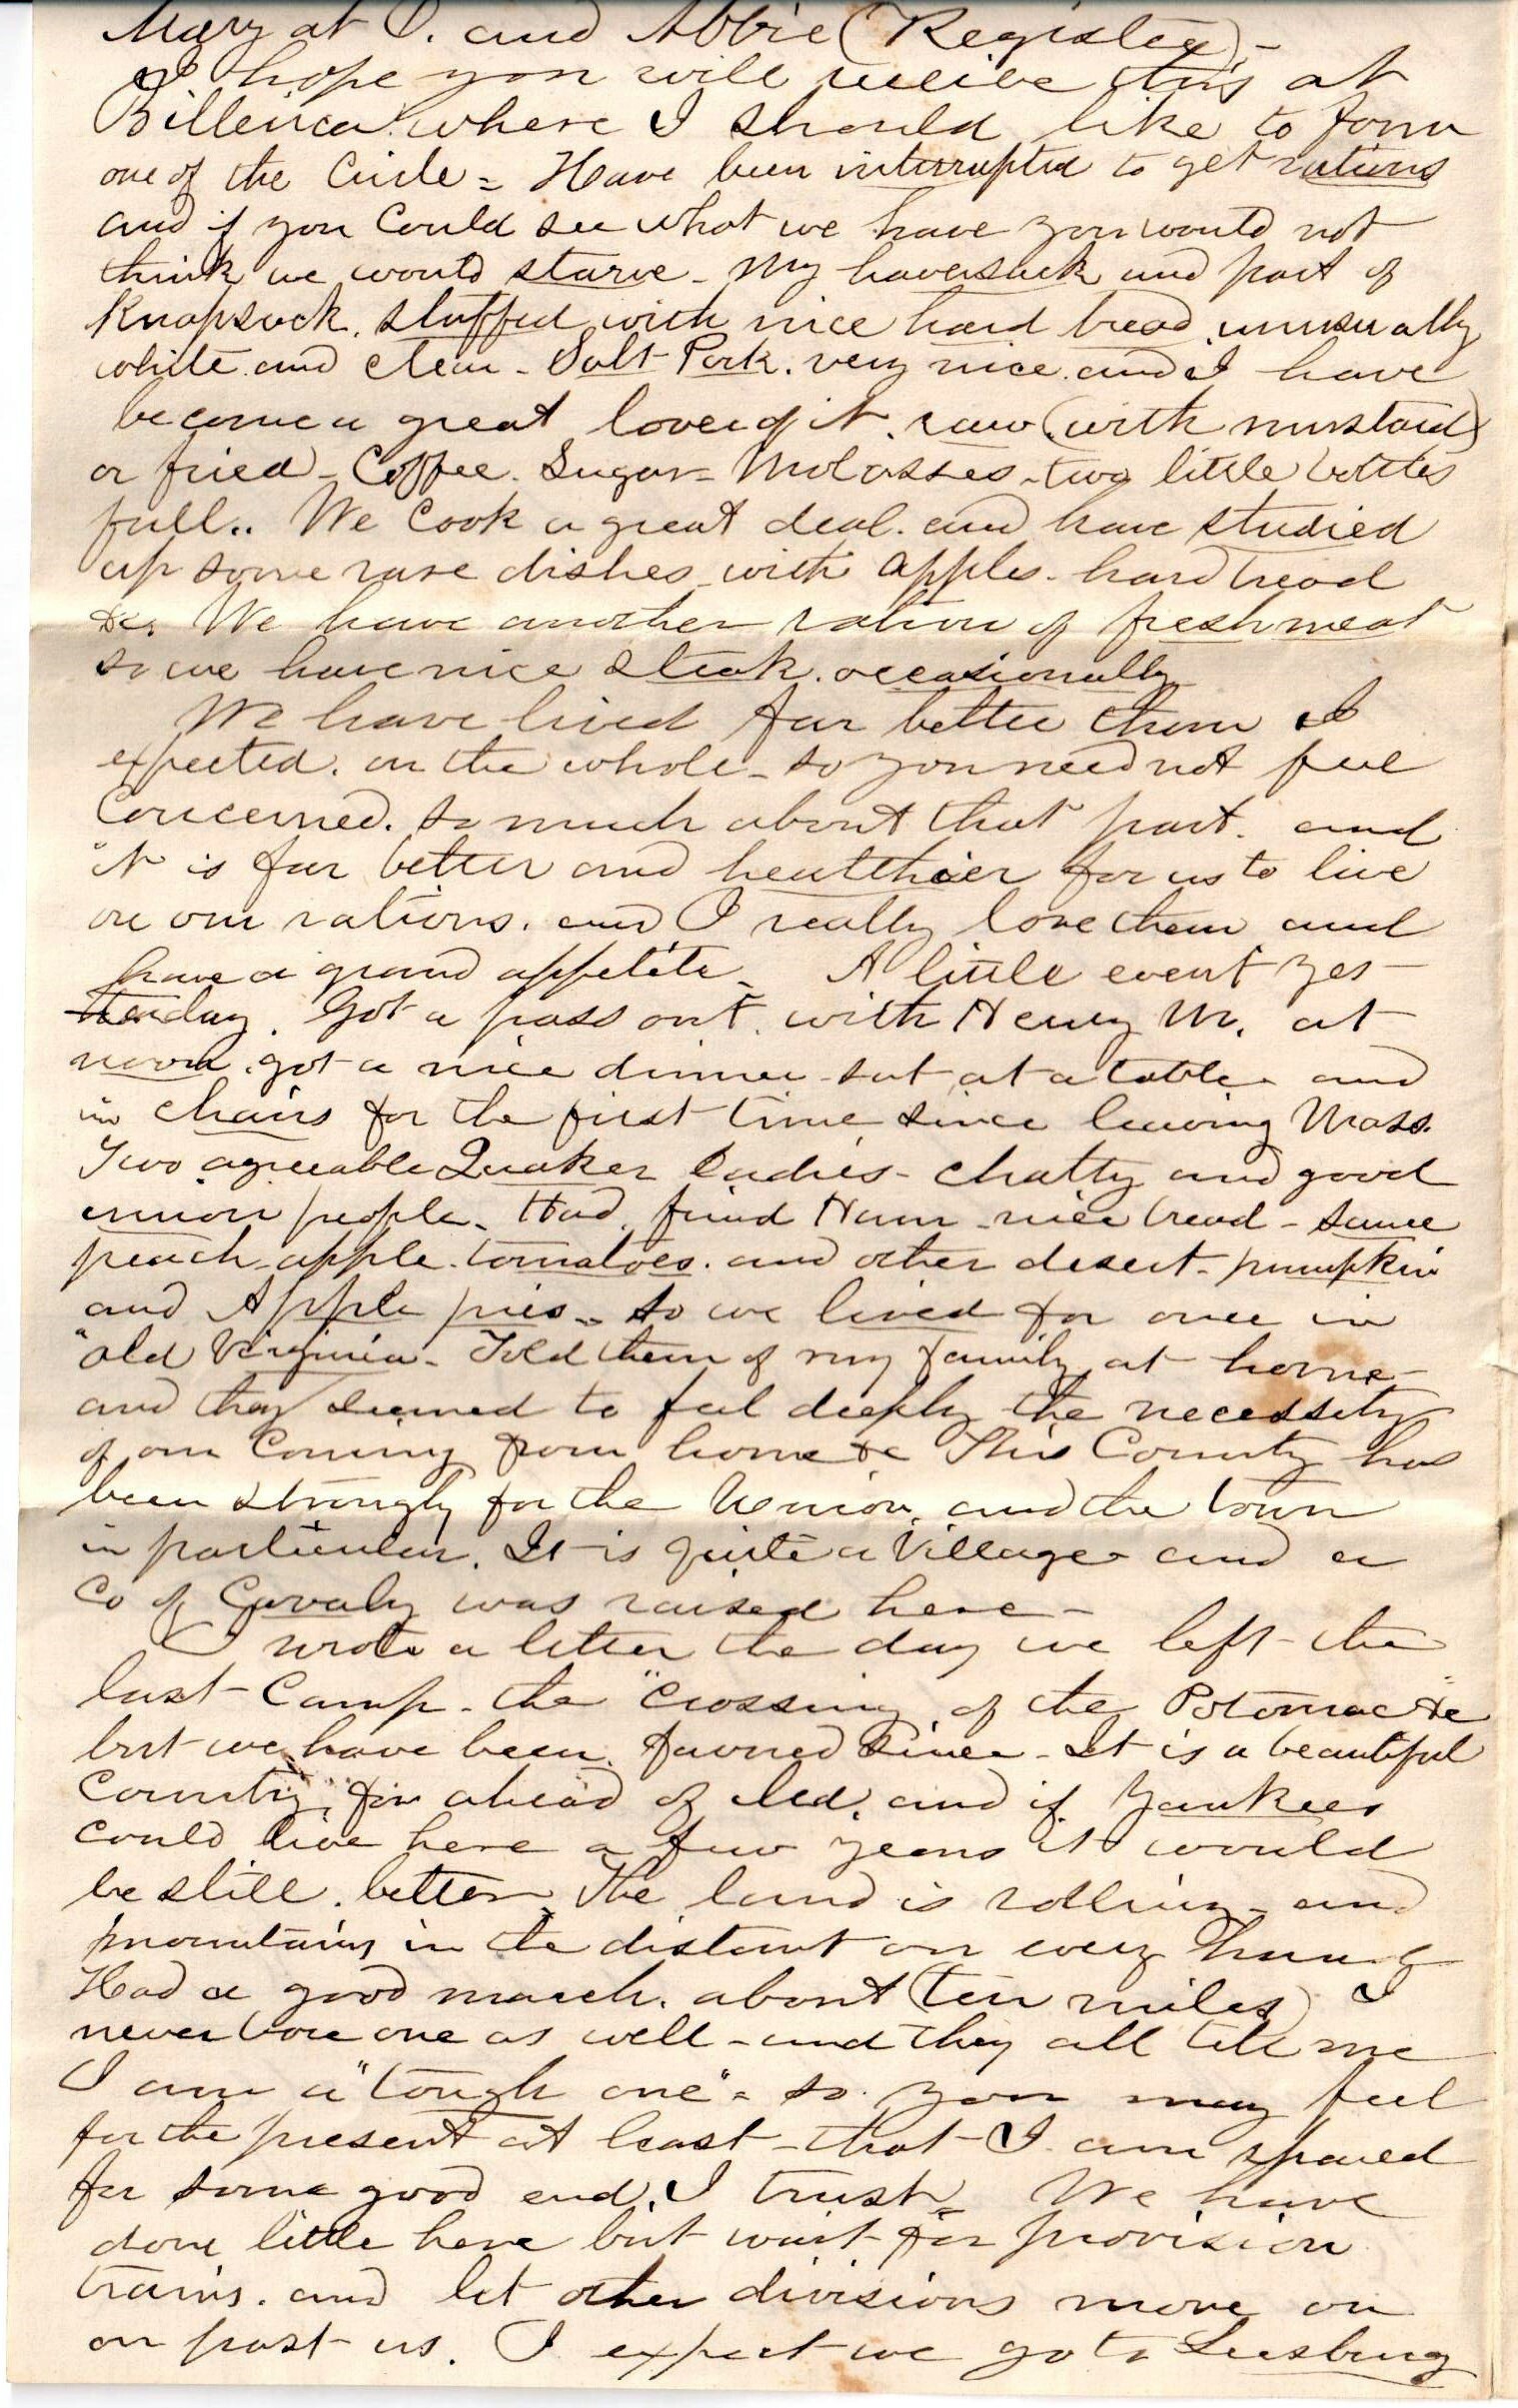 Mary at O. and Abbie (Register) -
I hope you will receive this at
Billerica where I should like to form
one of the Circle = Have been interrupted to get rations
and if you Could see what we have you would not
think we would starve - My haversack and part of
Knapsack. stuffed with nice hard bread unusually
white and clean - Salt Pork. very nice. and I have
become a great lover of it. raw (with mustard)
or fried - Coffee. Sugar - Molasses - two little bottles
full.. We Cook a great deal. and have studied
up some rare dishes with apples. hard bread
&c. We have another ration of fresh meat
so we have nice steak. occasionally
We have lived far better than I
expected. on the whole - so you need not feel
Concerned. so much about that part. and
it is far better and healthier for us to live
on our rations. and I really love them and
have a grand appetite - A little event yes-
terday. Got a pass out. with Henry M. at
noon. got a nice dinner - sat at a table and
in chairs for the first time since leaving Mass.
Two agreeable Quaker ladies - chatty and good
union people. Had fried Ham - nice bread - sauce
peach - apple. tomatoes. and other desert - pumpkin
and Apple pies.. so we lived for once in
"old Virginia - Told them of my family at home -
and they seemed to feel deeply the necessity
of our Coming from home &c This County has
been strongly for the Union. and the town
in particular. It is quite a Village and a
Co of Cavaly was raised here -
I wrote a letter the day we left the
last Camp - the "Crossing of the Potomac" &c
but we have been favored since - It is a beautiful
County, far ahead of Md. and if Yankees
could live here a few years it would
be still. better - The land is rolling - and
mountains in the distant on every hand
Had a good march. about (ten miles) I
never bore one as well - and they all tell me
I am a "tough one" - so you may feel
for the present at least - that I am spared
for some good end. I trust - We have
done little here but wait for provision
trains. and let other divisions move on
on past us. I expect we go to Leesburg